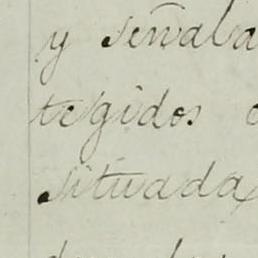 y señala
tegidos
situada